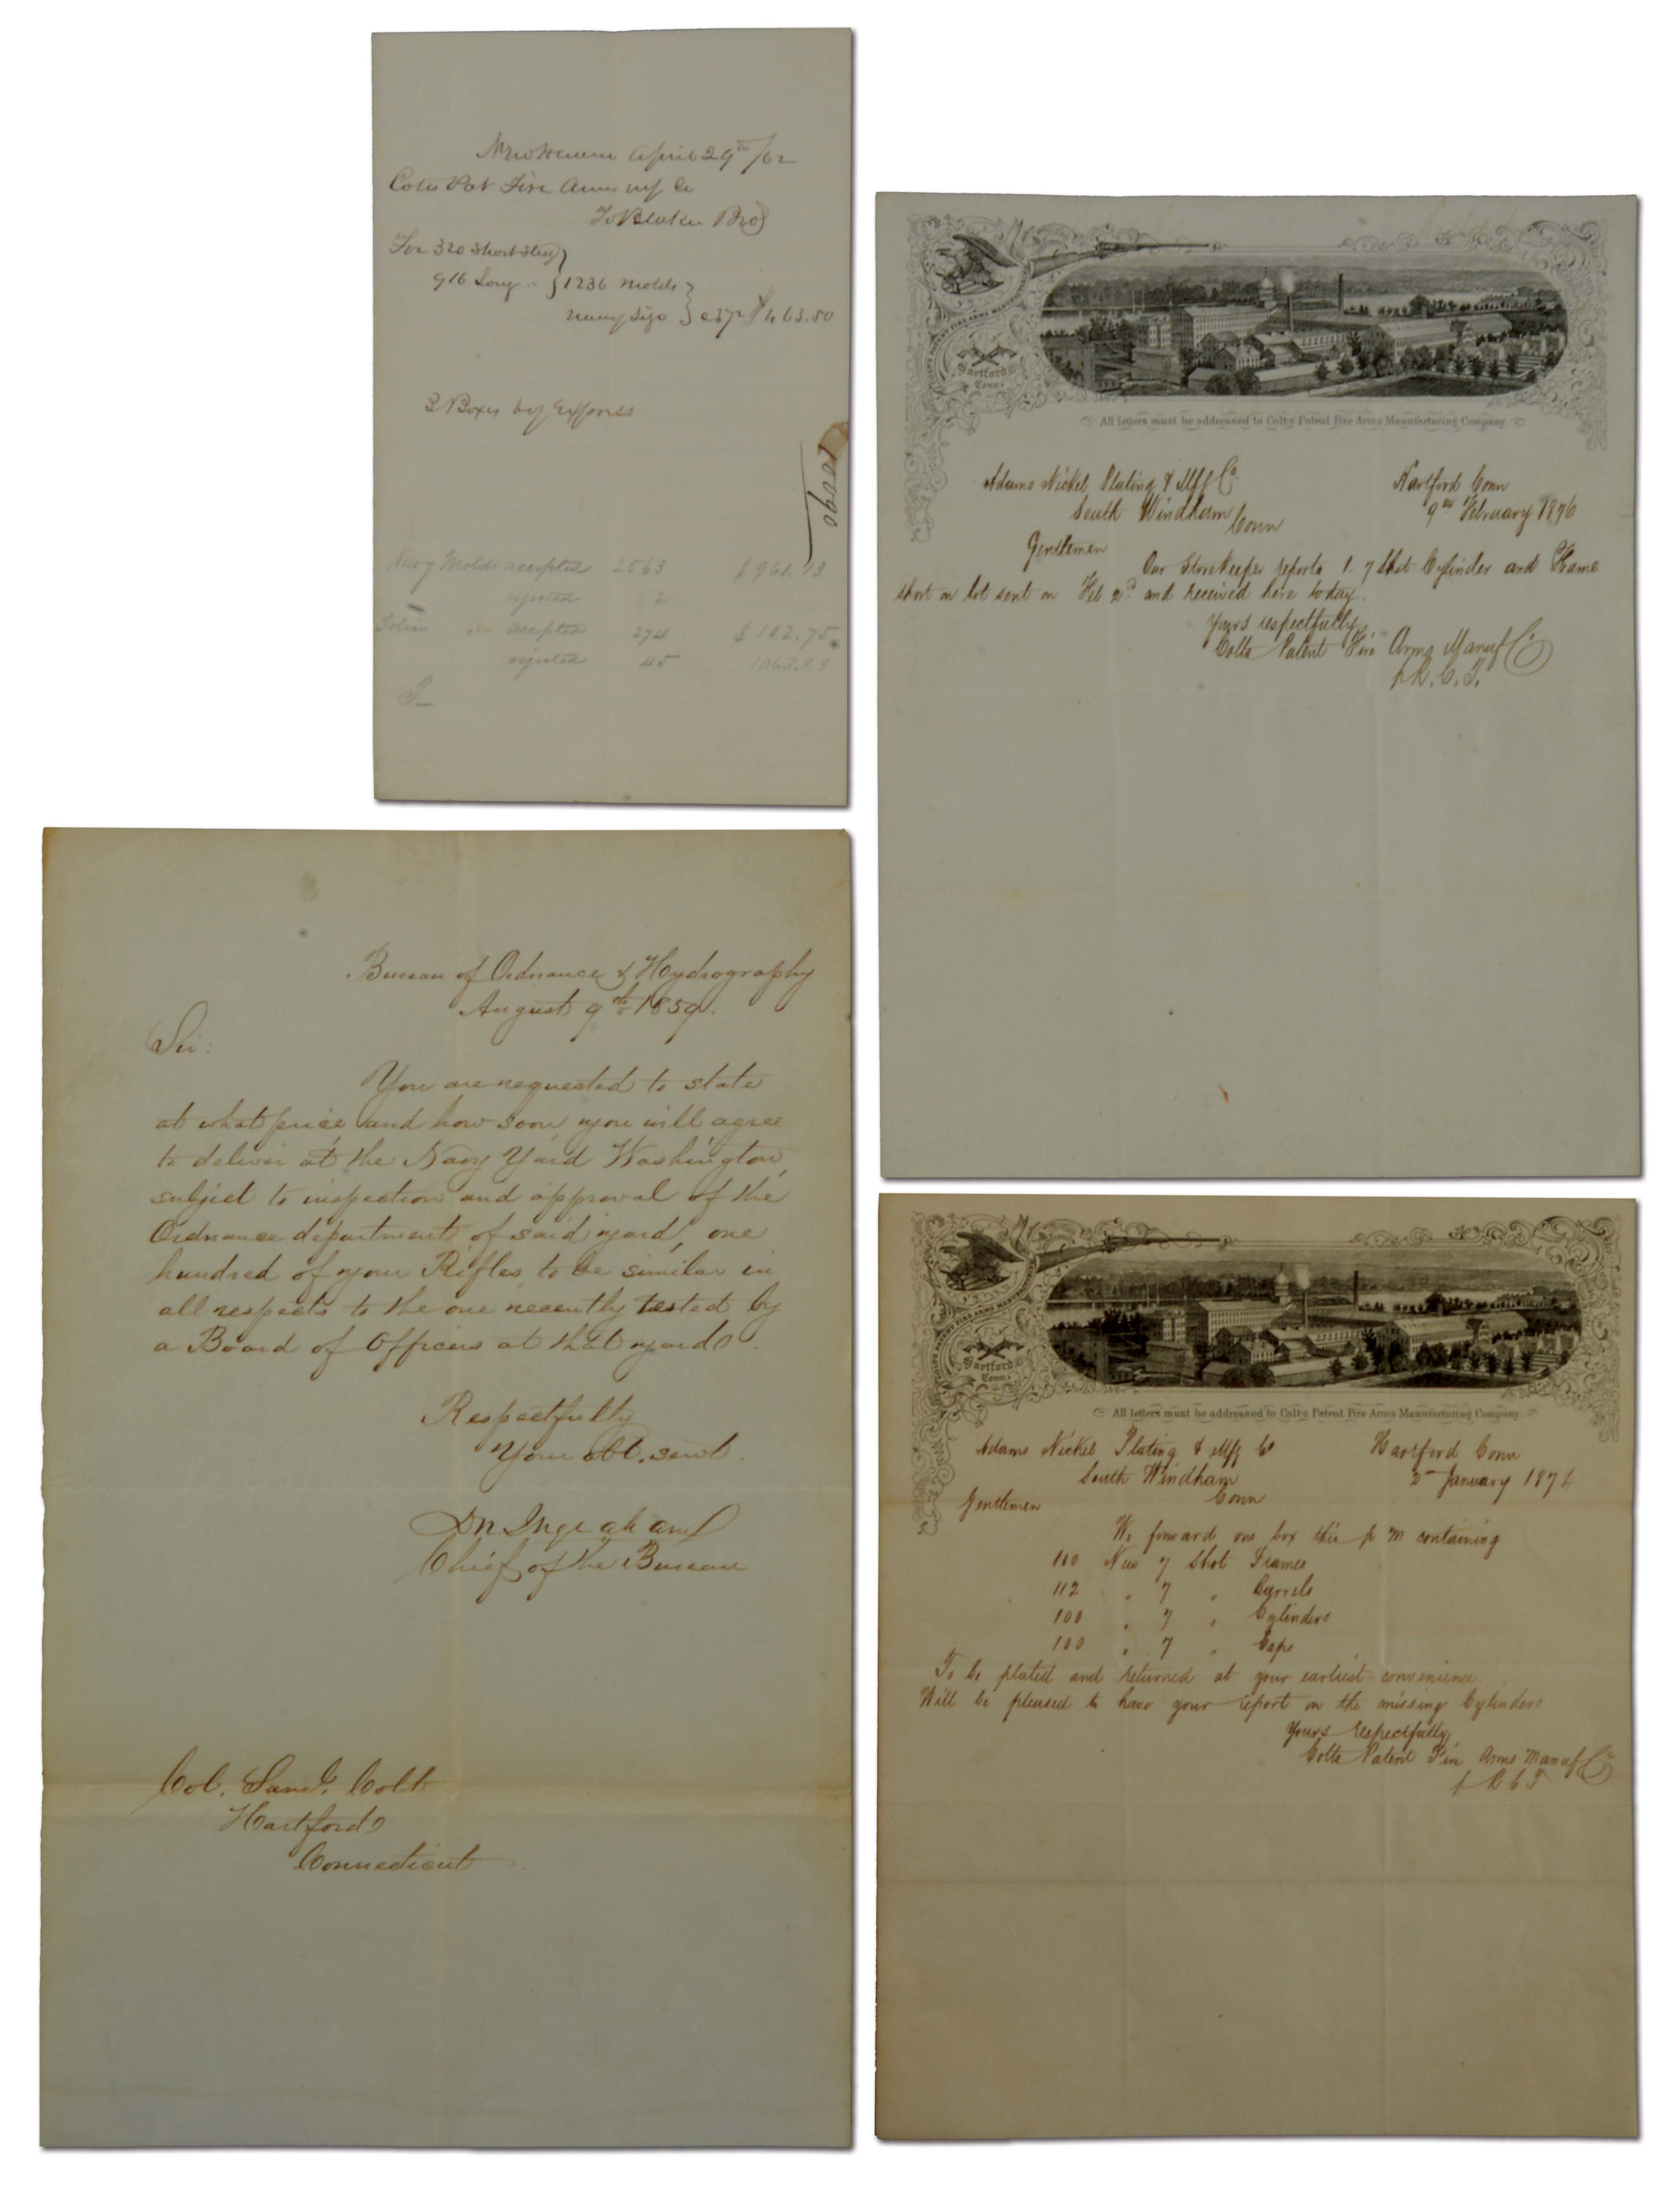 New Haven April 29th/62
Colts Pat Fire Arms mf Co
To Blake Bros
For 320 Short
916 Long " } 1236 Molds
Navy Size } @ 37½ $463.50
3 Boxes by Express
10090
Navy Molds accepted 2563 $961.13
rejected 2
accepted 274 $102.75
rejected 45 1063.88
Bureau of Ordnance & Hydrography
August 9th 1859.
Sir:
You are requested to state
at what price and how soon you will agree
to deliver at the Navy Yard Washington,
subject to inspection and approval of the
Ordnance department of said yard, one
hundred of your Rifles to be similar in
all respects to the one recently tested by
a Board of Officers at that yard.
Respectfully
Your obt. servt.
DN Ingraham
Chief of the Bureau
Col. Saml. Colt
Hartford
Connecticut
COLT'S PATENT FIRE ARMS MANUFACTURING
Hartford
Conn.
All letters must be addressed to Colts Patent Fire Arms Manufacturing Company.
Adams Nickel Plating & Mfg Co. Hartford Conn
South Windham 9th February 1876
Conn
Gentlemen
Our Storekeeper reports 1. 7 Shot Cylinder and Frame
short on lot sent on Feb 2d. and received here today.
Yours respectfully,
Colts Patent Fire Arms Manuf Co
p R. C. T.
COLT'S PATENT FIRE ARMS MANUFACTURING
Hartford
Conn.
All letters must be addressed to Colts Patent Fire Arms Manufacturing Company.
Adams Nickel Plating & Mfg Co Hartford Conn
South Windham 2nd January 1874
Gentlemen Conn
We forward one box this p m containing
100 New 7 Shot Frames
112 " 7 " Barrels
100 " 7 " Cylinders
100 " 7 " Caps
To be plated and returned at your earliest convenience
Will be pleased to have your report on the missing Cylinders
Yours respectfully
Colts Patent Fire Arms Manuf Co
p R C T